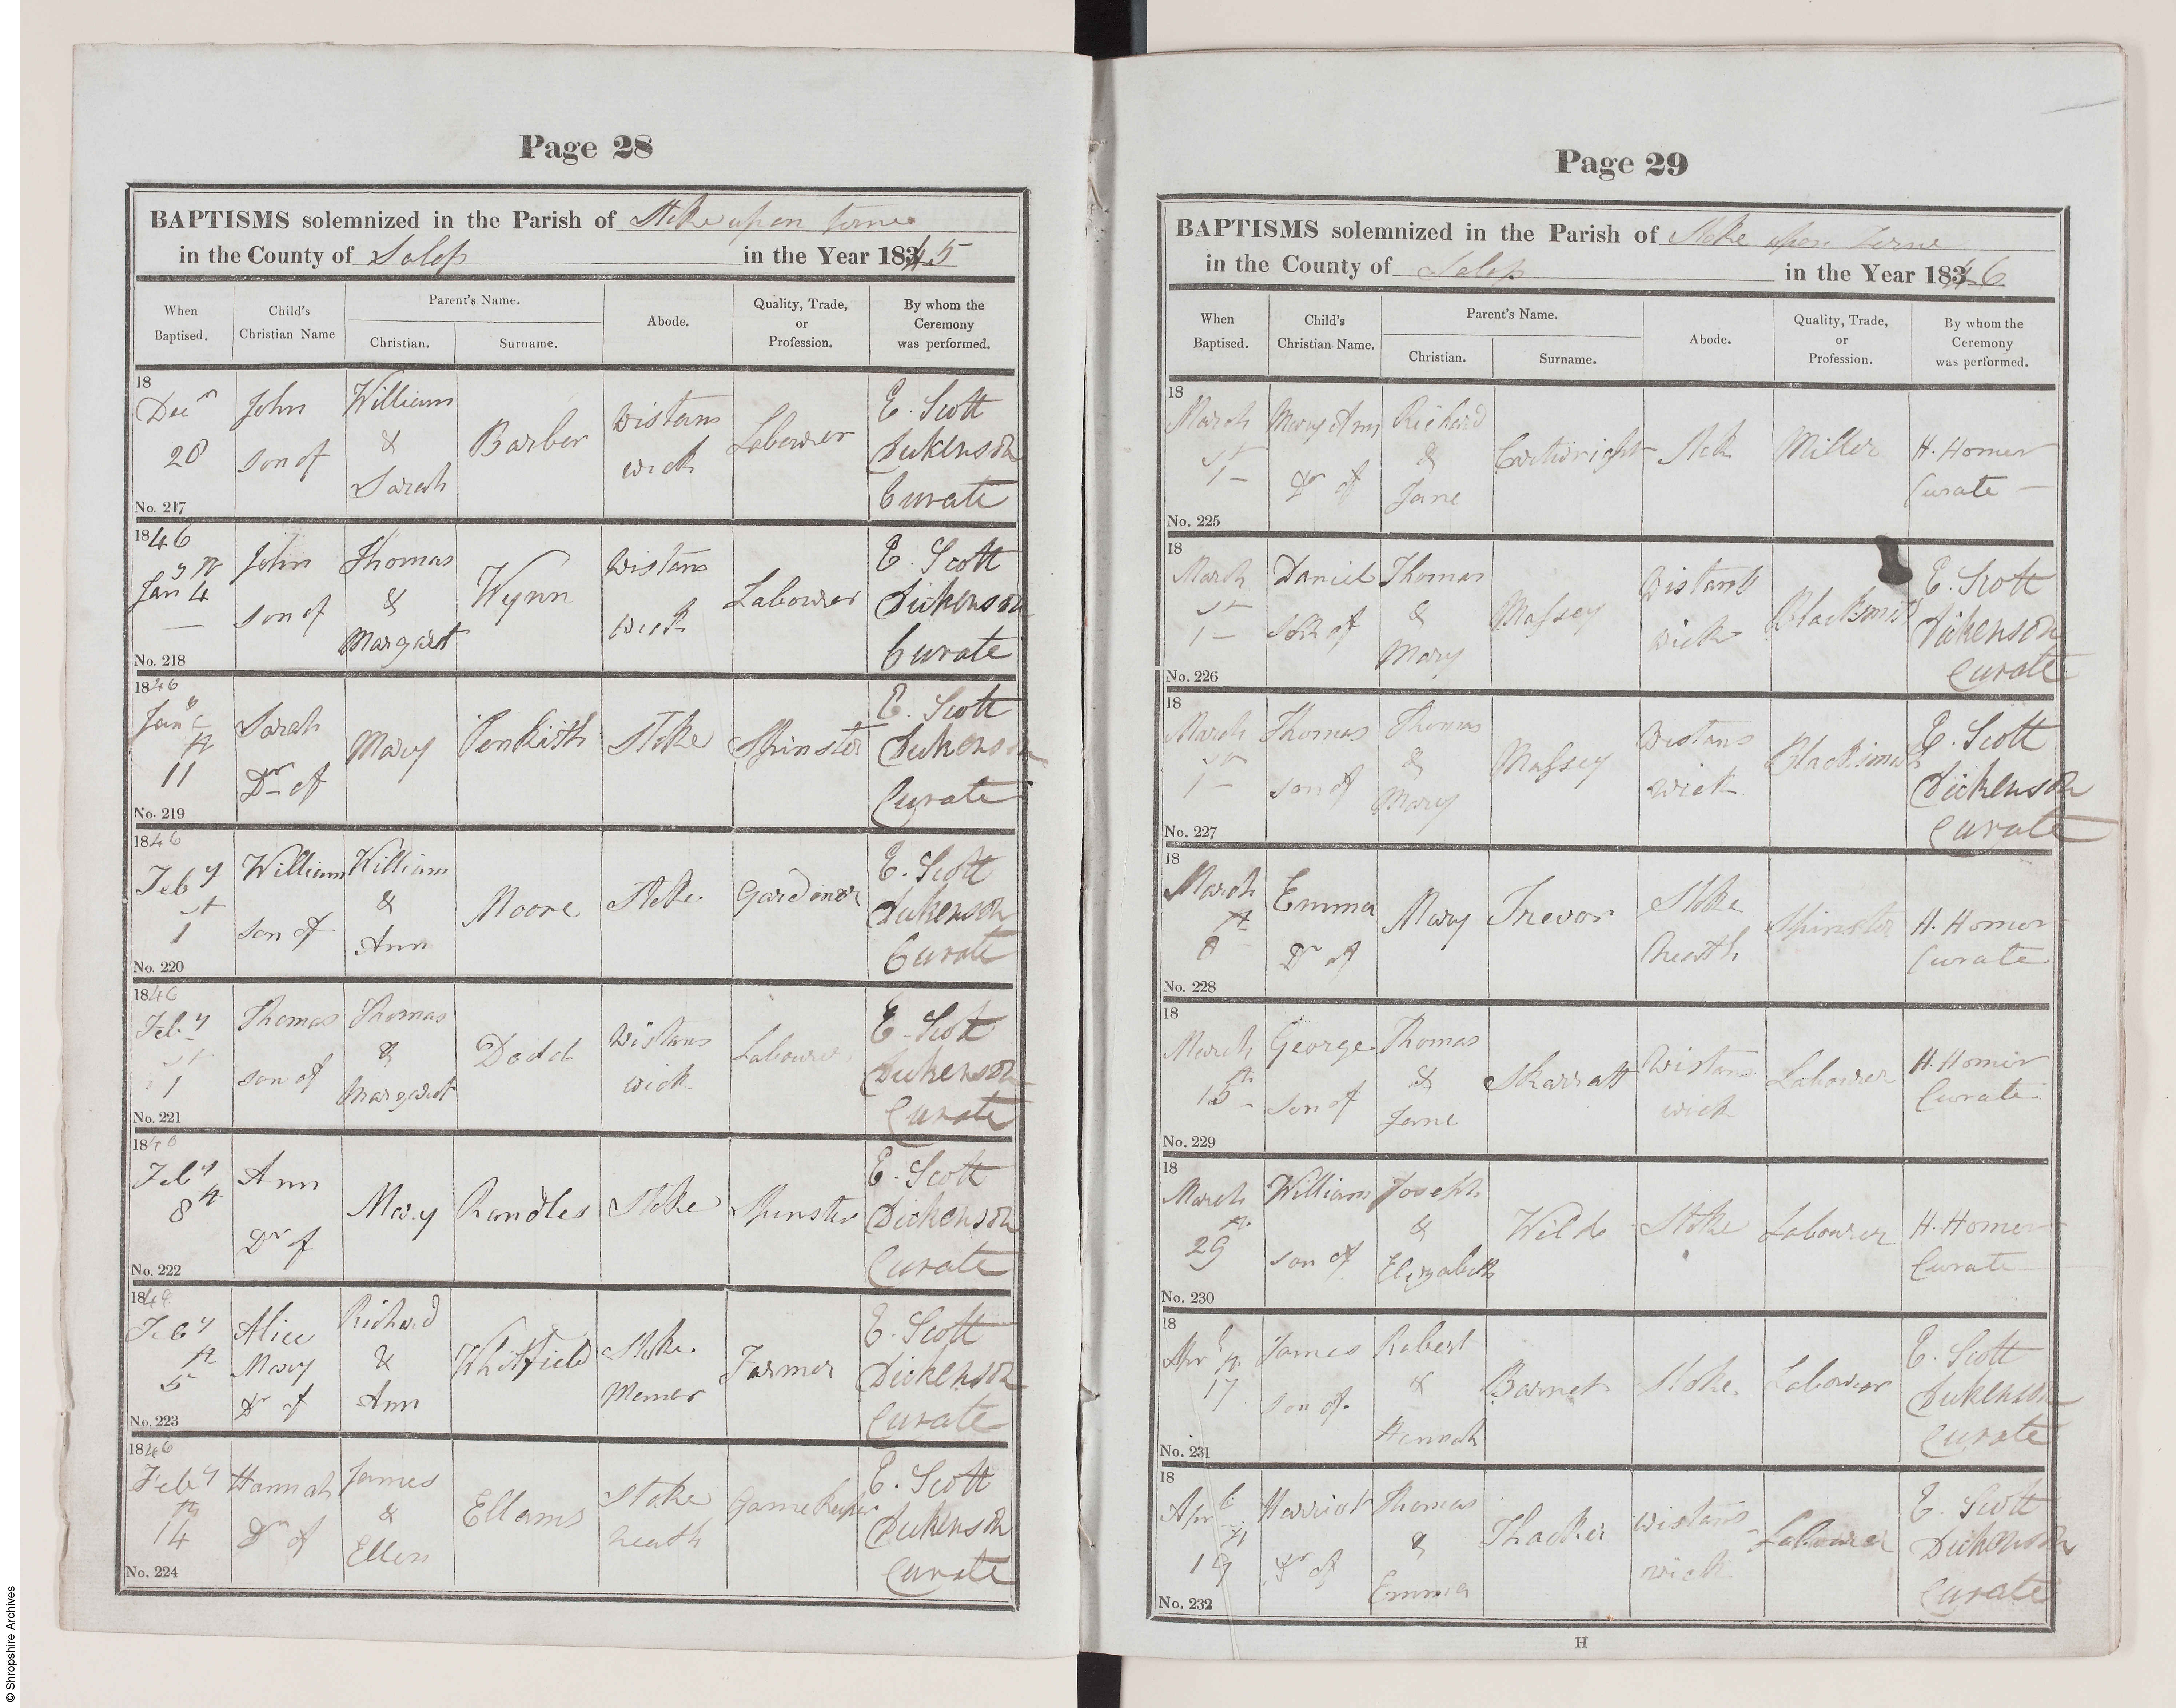 Page 28
BAPTISMS solemnized in the Parish of Stoke upon Terne
in the County of Salop in the Year 1845
When Baptised.
Child's Christian Name
Parent's Name.
Christian.
Surname.
Abode.
Quality, Trade, or Profession.
By whom the Ceremony was performed.
18
Decr 28
John son of
William & Sarah
Barber
Wistans wick
Labourer
E. Scott Dickenson Curate
No. 217
1846
Jany 4th
John son of
Thomas & Margaret
Wynn
Wistans wick
Labourer
E. Scott Dickenson Curate
No. 218
1846
Jany 11th
Sarah Dr of
Mary
Penkith
Stoke
Spinster
E. Scott Dickenson Curate
No. 219
1846
Feby 1st
William son of
William & Ann
Moore
Stoke
Gardener
E. Scott Dickenson Curate
No. 220
1846
Feby 1st
Thomas son of
Thomas & Margaret
Dodd
Wistans wick
Labourer
E. Scott Dickenson Curate
No. 221
1846
Feby 8th
Ann Dr of
Mary
Randles
Stoke
Spinster
E. Scott Dickenson Curate
No. 222
1846
Feby 5th
Alice Mary Dr of
Richard & Ann
Whitfield
Stoke
Farmer
E. Scott Dickenson Curate
No. 223
1846
Feby 14th
Hannah Dr of
James & Ellen
Ellams
Stoke heath
Gamekeeper
E. Scott Dickenson Curate
No. 224
Page 29
BAPTISMS solemnized in the Parish of Stoke upon Terne
in the County of Salop in the Year 1846
When Baptised.
Child's Christian Name.
Parent's Name.
Christian.
Surname.
Abode.
Quality, Trade, or Profession.
By whom the Ceremony was performed.
18
March 1st
Mary Ann Dr of
Richard & Jane
Cartwright
Miller
H. Homer Curate
No. 225
18
March 1st
Daniel son of
Thomas & Mary
Massey
Wistans wick
Blacksmith
E. Scott Dickenson Curate
No. 226
18
March 1st
Thomas son of
Thomas & Mary
Massey
Wistans wick
Blacksmith
E. Scott Dickenson Curate
No. 227
18
March 8th
Emma Dr of
Mary
Trevor
Stoke heath
Spinster
H. Homer Curate
No. 228
18
March 15th
George son of
Thomas & Jane
Skarratt
Wistans wick
Labourer
H. Homer Curate
No. 229
18
March 29th
William son of
Joseph & Elizabeth
Wild
Stoke
Labourer
H. Homer Curate
No. 230
18
Aprl 17th
James son of
Robert & Hannah
Barnet
Stoke
Labourer
E. Scott Dickenson Curate
No. 231
18
Aprl 19th
Harriot Dr of
Thomas & Emma
Thacker
Wistans wick
Labourer
E. Scott Dickenson Curate
No. 232
H
© Shropshire Archives